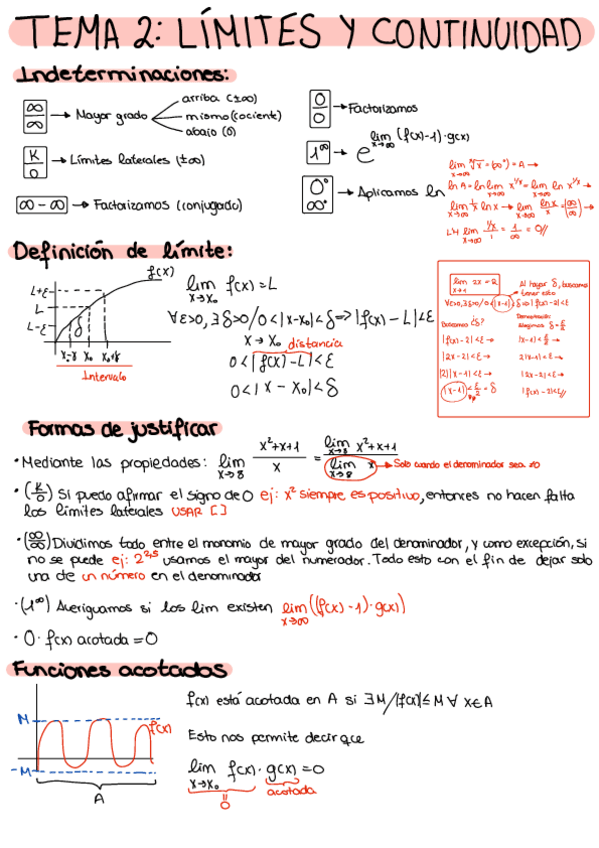 TEMA 2: LÍMITES Y CONTINUIDAD
Indeterminaciones:
∞/∞ → Mayor grado
arriba (±∞)
mismo (cociente)
abajo (0)
0/0 → Factorizamos
K/0 → Límites laterales (±∞)
1^∞ → e^(lim x→∞ (f(x)-1)·g(x))
∞-∞ → Factorizamos (conjugado)
0° ∞° → Aplicamos ln
lim x→∞ ˣ√x = (∞°) = A →
ln A = ln lim x→∞ x^(1/x) = lim x→∞ ln x^(1/x) →
lim x→∞ 1/x ln x → lim x→∞ ln x/x = (∞/∞) →
L'H lim x→∞ (1/x)/1 = 1/∞ = 0//
Definición de límite:
f(x)
L+ε
L
L-ε
δ
x₀ x₀+δ
Intervalo
lim x→x₀ f(x) = L
∀ε>0, ∃δ>0/0<|x-x₀|<δ ⇒ |f(x)-L|<ε
x → x₀ distancia
0<|f(x)-L|<ε
0<|x-x₀|<δ
lim x→1 2x = 2
Al hayar δ, buscamos
tener esto
∀ε>0,∃δ>0/0<|x-1|<δ ⇒ |f(x)-2|<ε
Buscamos ¿δ?
|f(x)-2|<ε →
|2x-2|<ε →
|2||x-1|<ε →
|x-1|<ε/2 = δ
Demostración
Elegimos δ = ε/2
|x-1|<ε/2 →
2|x-1|<ε →
|2x-2|<ε →
|f(x)-2|<ε//
Formas de justificar
· Mediante las propiedades: lim x→8 (x²+x+1)/x = (lim x→8 x²+x+1)/(lim x→8 x) → Solo cuando el denominador sea ≠0
· (K/0) Si puedo afirmar el signo de 0 ej: x² siempre es positivo, entonces no hacen falta
los límites laterales USAR [ ]
· (∞/∞) Dividimos todo entre el monomio de mayor grado del denominador, y como excepción, si
no se puede ej: 2^3,5 usamos el mayor del numerador. Todo esto con el fin de dejar solo
una de un número en el denominador
· (1^∞) Averiguamos si los lim existen lim x→∞ ((f(x)-1)·g(x))
· 0·f(x) acotada = 0
Funciones acotadas
M
-M
f(x)
A
f(x) está acotada en A si ∃M/|f(x)|≤M ∀ x∈A
Esto nos permite decir que
lim x→x₀ f(x)·g(x) = 0
0
acotada